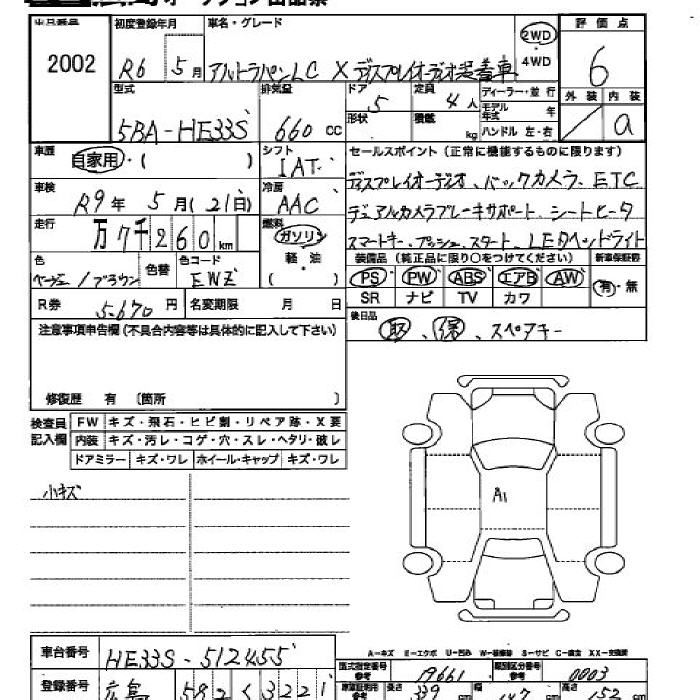 オークション出品票
出品番号 2002
初度登録年月 R6年5月
車名・グレード アルトラパンLC X ディスプレイオーディオ装着車
2WD 4WD
評価点 6
外装 / 内装 a
型式 5BA-HE33S
排気量 660 cc
ドア 5 形状
定員 4人 積載 kg
ディーラー・並行
モデル年式 年
ハンドル 左・右
車歴 自家用・( )
シフト IAT
セールスポイント(正常に機能するものに限ります)
車検 R9年5月(21日)
冷房 AAC
ディスプレイオーディオ、バックカメラ、ETC
デュアルカメラブレーキサポート、シートヒータ
スマートキー、プッシュ、スタート、LEDヘッドライト
走行 万7千260km
燃料 ガソリン 軽・油 ( )
色 ベージュ/ブラウン
色替
色コード EWZ
装備品(純正品に限り〇をつけてください)
新車保証書 有・無
PS PW ABS エアB AW
SR ナビ TV カワ
R券 5,670円
名変期限 月 日
後日品 取、保、スペアキー
注意事項申告欄(不具合内容等は具体的に記入して下さい)
修復歴 有 〔箇所 〕
検査員記入欄
FW キズ・飛石・ヒビ割・リペア跡・X要
内装 キズ・汚レ・コゲ・穴・スレ・ヘタリ・破レ
ドアミラー キズ・ワレ ホイール・キャップ キズ・ワレ
小キズ
A1
A-キズ E-エクボ U-凹み W-補修跡 S-サビ C-腐食 XX-交換済
車台番号 HE33S-512455
型式指定番号 参考 19661
類別区分番号 参考 0003
登録番号 広島 582 く 3221
長さ 339 幅 147 高さ 152